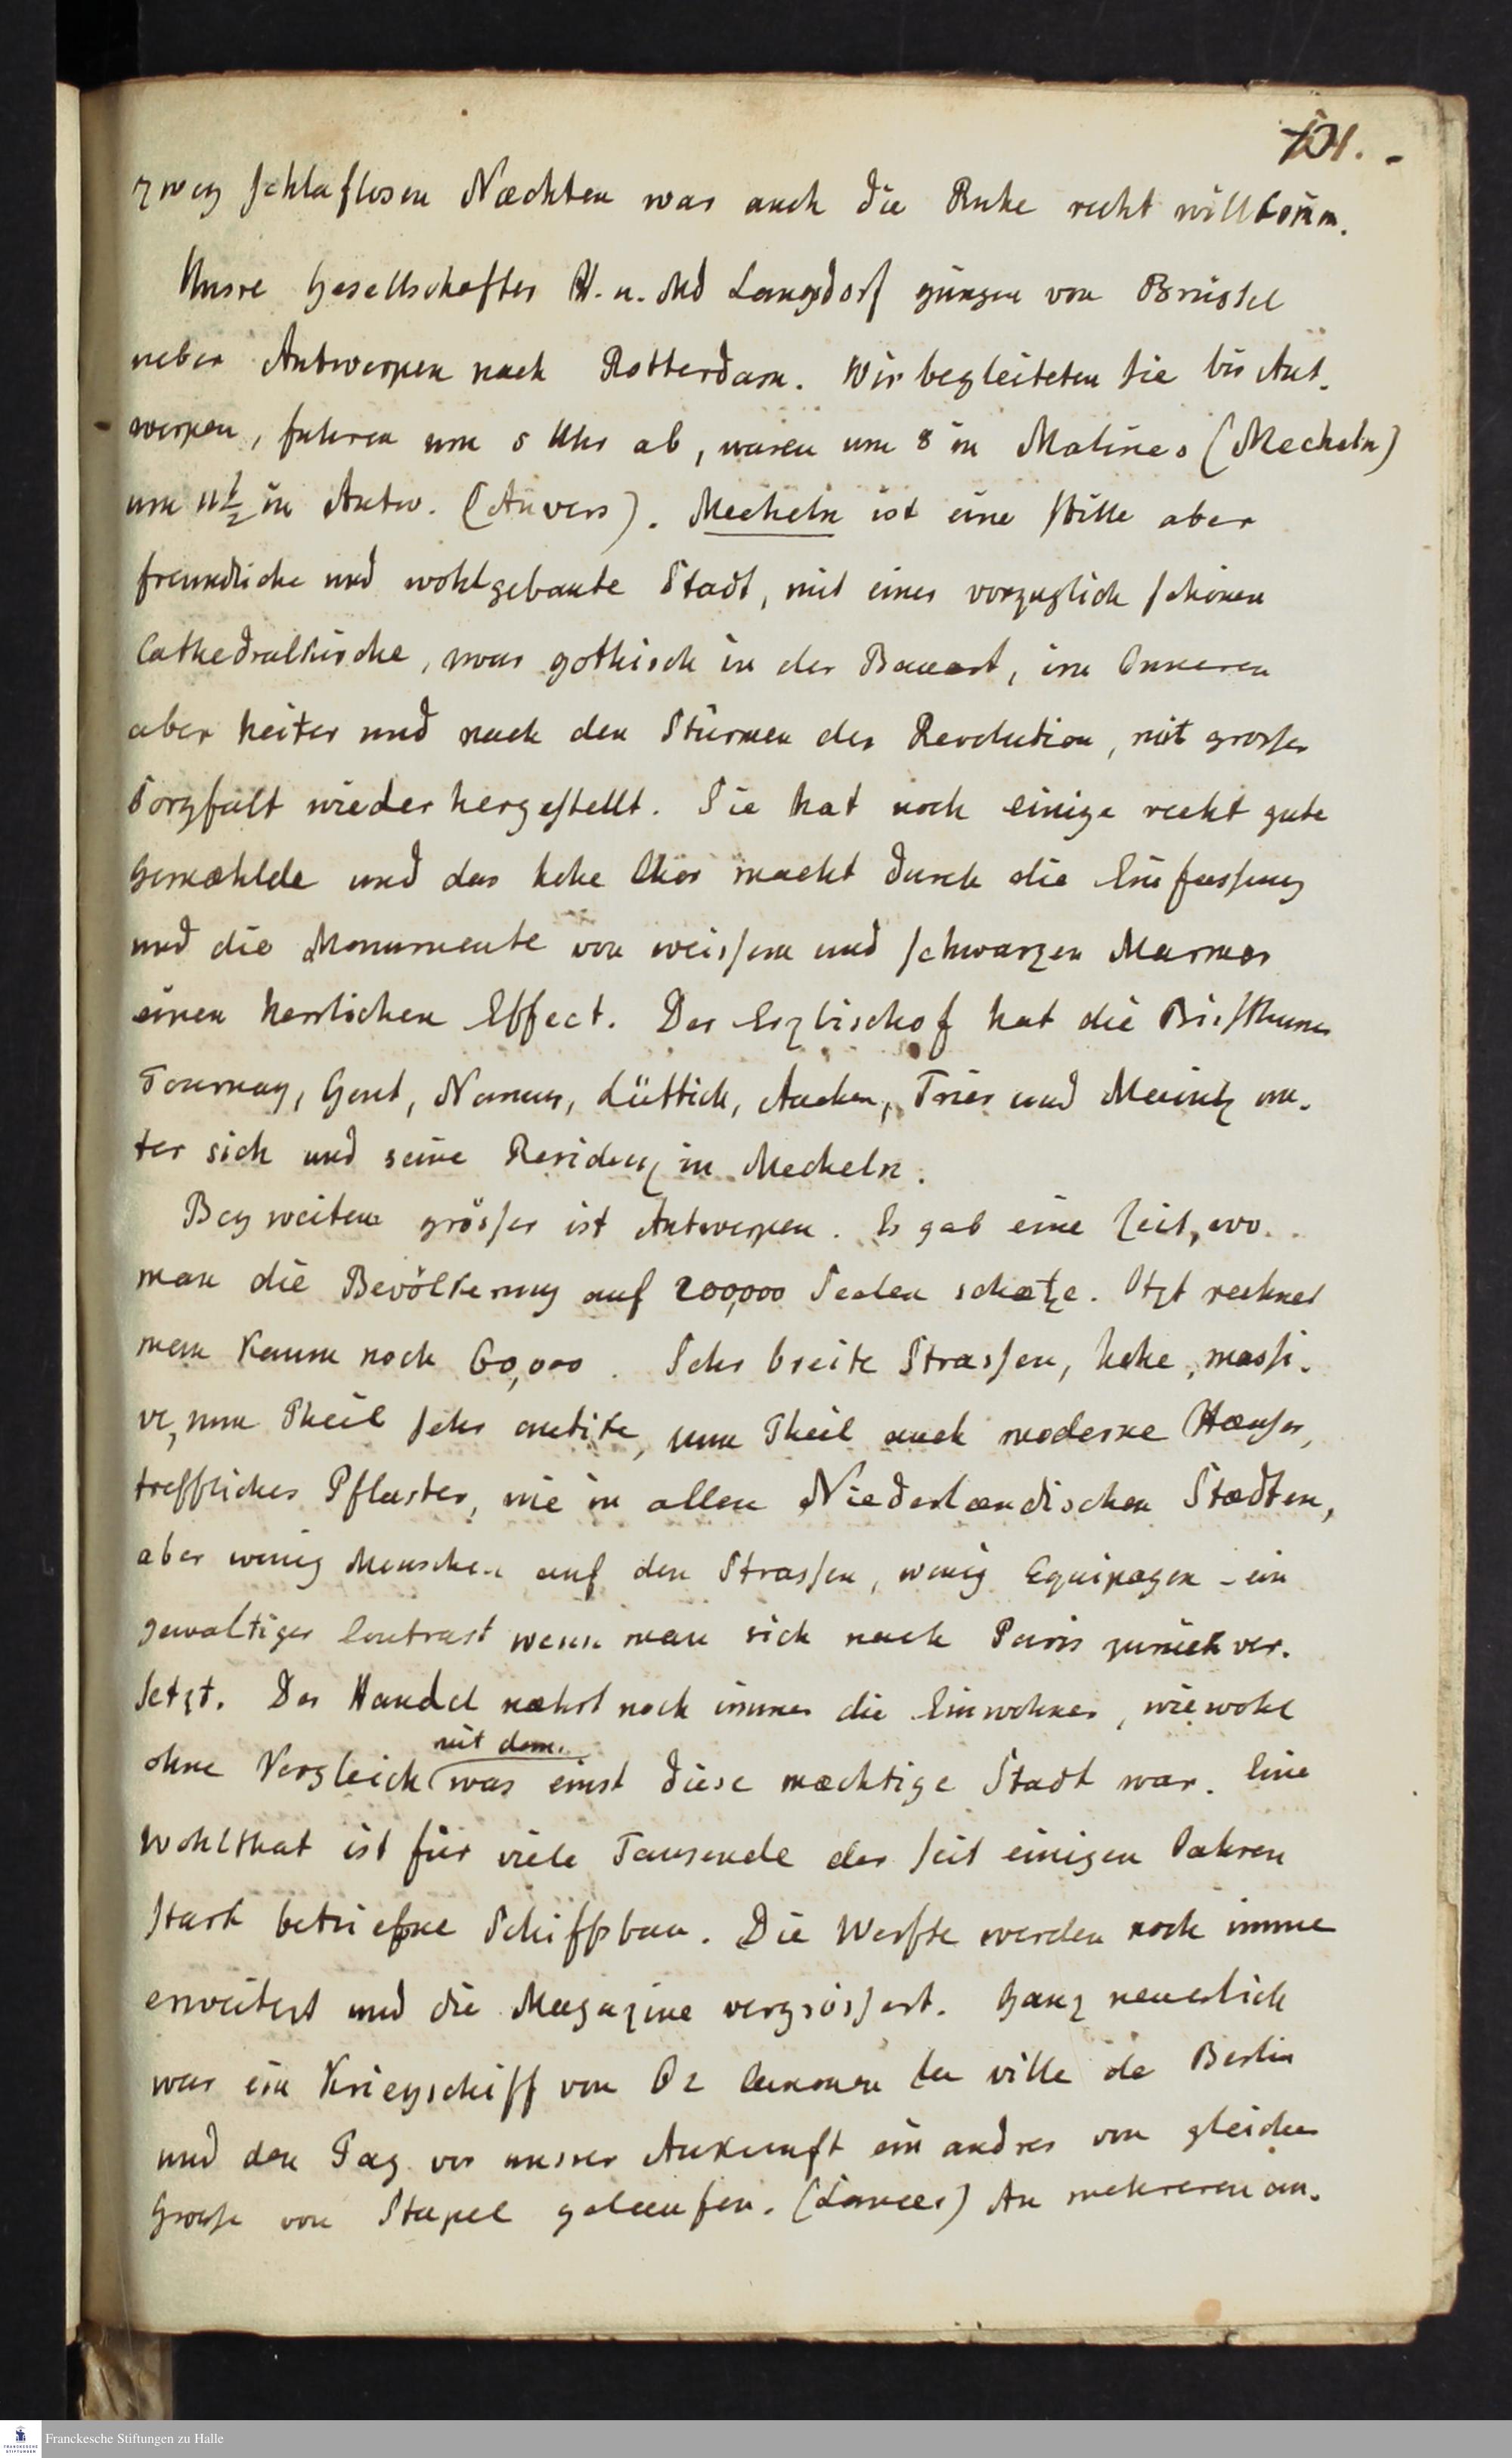 101.
zwey schlaflosen Næchten war auch die Ruhe recht willkom̅n.
Unsre Gesellschafter H. u. Md Langsdorf gingen von Brüssel
ueber Antwerpen nach Rotterdam. Wir begleiteten sie bis Ant-
werpen, fuhren um 5 Uhr ab, waren um 8 in Malines (Mecheln)
um 11 1/2 in Antw. (Anvers). Mecheln ist eine stille aber
freundliche und wohlgebaute Stadt, mit einer vorzuglich schönen
Cathedralkirche, zwar gothisch in der Bauart, im Inneren
aber heiter und nach den Stürmen der Revolution, mit grosser
Sorgfalt wieder hergestellt. Sie hat noch einige recht gute
Gemæhlde und das hohe Chor macht durch die Einfassung
und die Monumente von weissem und schwarzen Marmor
einen herrlichen Effect. Der Erzbischof hat die Bissthumer
Tournay, Gent, Namur, Lüttich, Aachen, Trier und Mainz un-
ter sich und seine Residenz in Mecheln.
Bey weitem grösser ist Antwerpen. Es gab eine Zeit, wo
man die Bevölkerung auf 200,000 Seelen schætze. Itzt rechnet
man kaum noch 60,000. Sehr breite Strassen, hohe, massi-
ve, zum Theil sehr antike, zum Theil auch moderne Hæuser,
treffliches Pflaster, wie in allen Niederlændischen Stædten,
aber wenig Menschen auf den Strassen, wenig Equipagen - ein
gewaltiger Contrast wenn man sich nach Paris zurück ver-
setzt. Der Handel næhrt noch immer die Einwohner, wiewohl
ohne Vergleich mit dem was einst diese mæchtige Stadt war. Eine
Wohlthat ist für viele Tausende der seit einigen Jahren
stark betriebne Schiffsbau. Die Werfte werden noch imme
erweitert und die Magazine vergrössert. Ganz neuerlich
war ein Kriegschiff von 82 Canonen la ville de Berlin
und den Tag vor unsrer Ankunft ein andres von gleicher
Grosse von Stapel gelaufen. An mehreren an-
Franckesche Stiftungen zu Halle